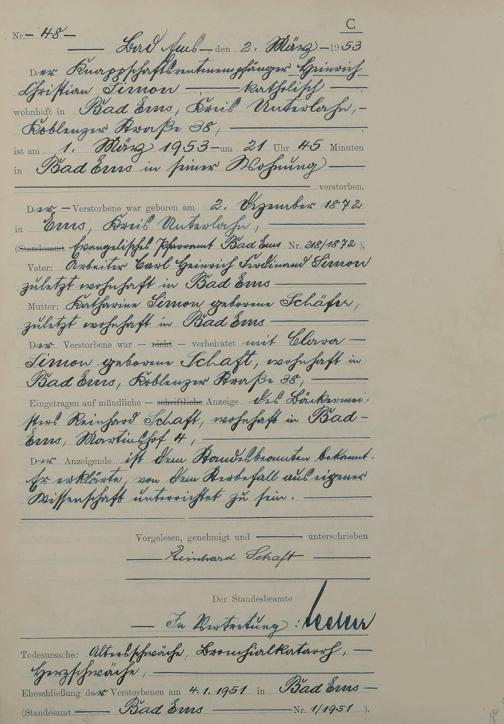 C
Nr. 48
Bad Ems, den 2. März 1953
Der Knappschaftsrentenempfänger Heinrich
Christian Simon katholisch
wohnhaft in Bad Ems, Kreis Unterlahn,
Koblenzer Straße 38,
ist am 1. März 1953 um 21 Uhr 45 Minuten
in Bad Ems in seiner Wohnung
verstorben.
Der Verstorbene war geboren am 2. Dezember 1872
in Ems, Kreis Unterlahn,
(Standesamt Evangelisches Pfarramt Bad Ems Nr. 218/1872),
Vater: Arbeiter Carl Heinrich Ferdinand Simon
zuletzt wohnhaft in Bad Ems
Mutter: Katharine Simon geborene Schäfer,
zuletzt wohnhaft in Bad Ems
Der Verstorbene war nicht verheiratet mit Clara
Simon geborene Schaft, wohnhaft in
Bad Ems, Koblenzer Straße 38,
Eingetragen auf mündliche schriftliche Anzeige des Bäckermei-
sters Reinhard Schaft, wohnhaft in Bad-
Ems, Martinshof 4,
Der Anzeigende ist dem Standesbeamten bekannt.
Er erklärte, von dem Sterbefall aus eigener
Wissenschaft unterrichtet zu sein.
Vorgelesen, genehmigt und unterschrieben
Reinhard Schaft
Der Standesbeamte
In Vertretung:
Todesursache: Altersschwäche, Bronchialkatarrh,
Herzschwäche,
Eheschließung der Verstorbenen am 4.1.1951 in Bad Ems
(Standesamt Bad Ems Nr. 1/1951).